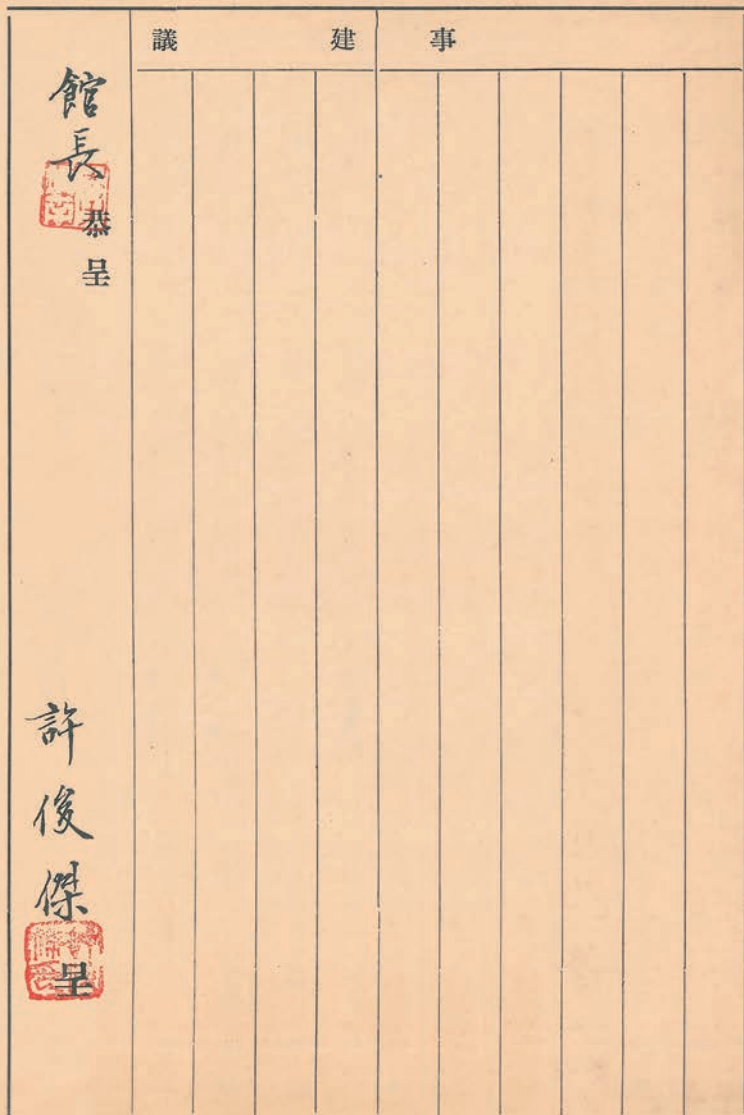 事
建議
館長 恭呈
許俊傑 呈